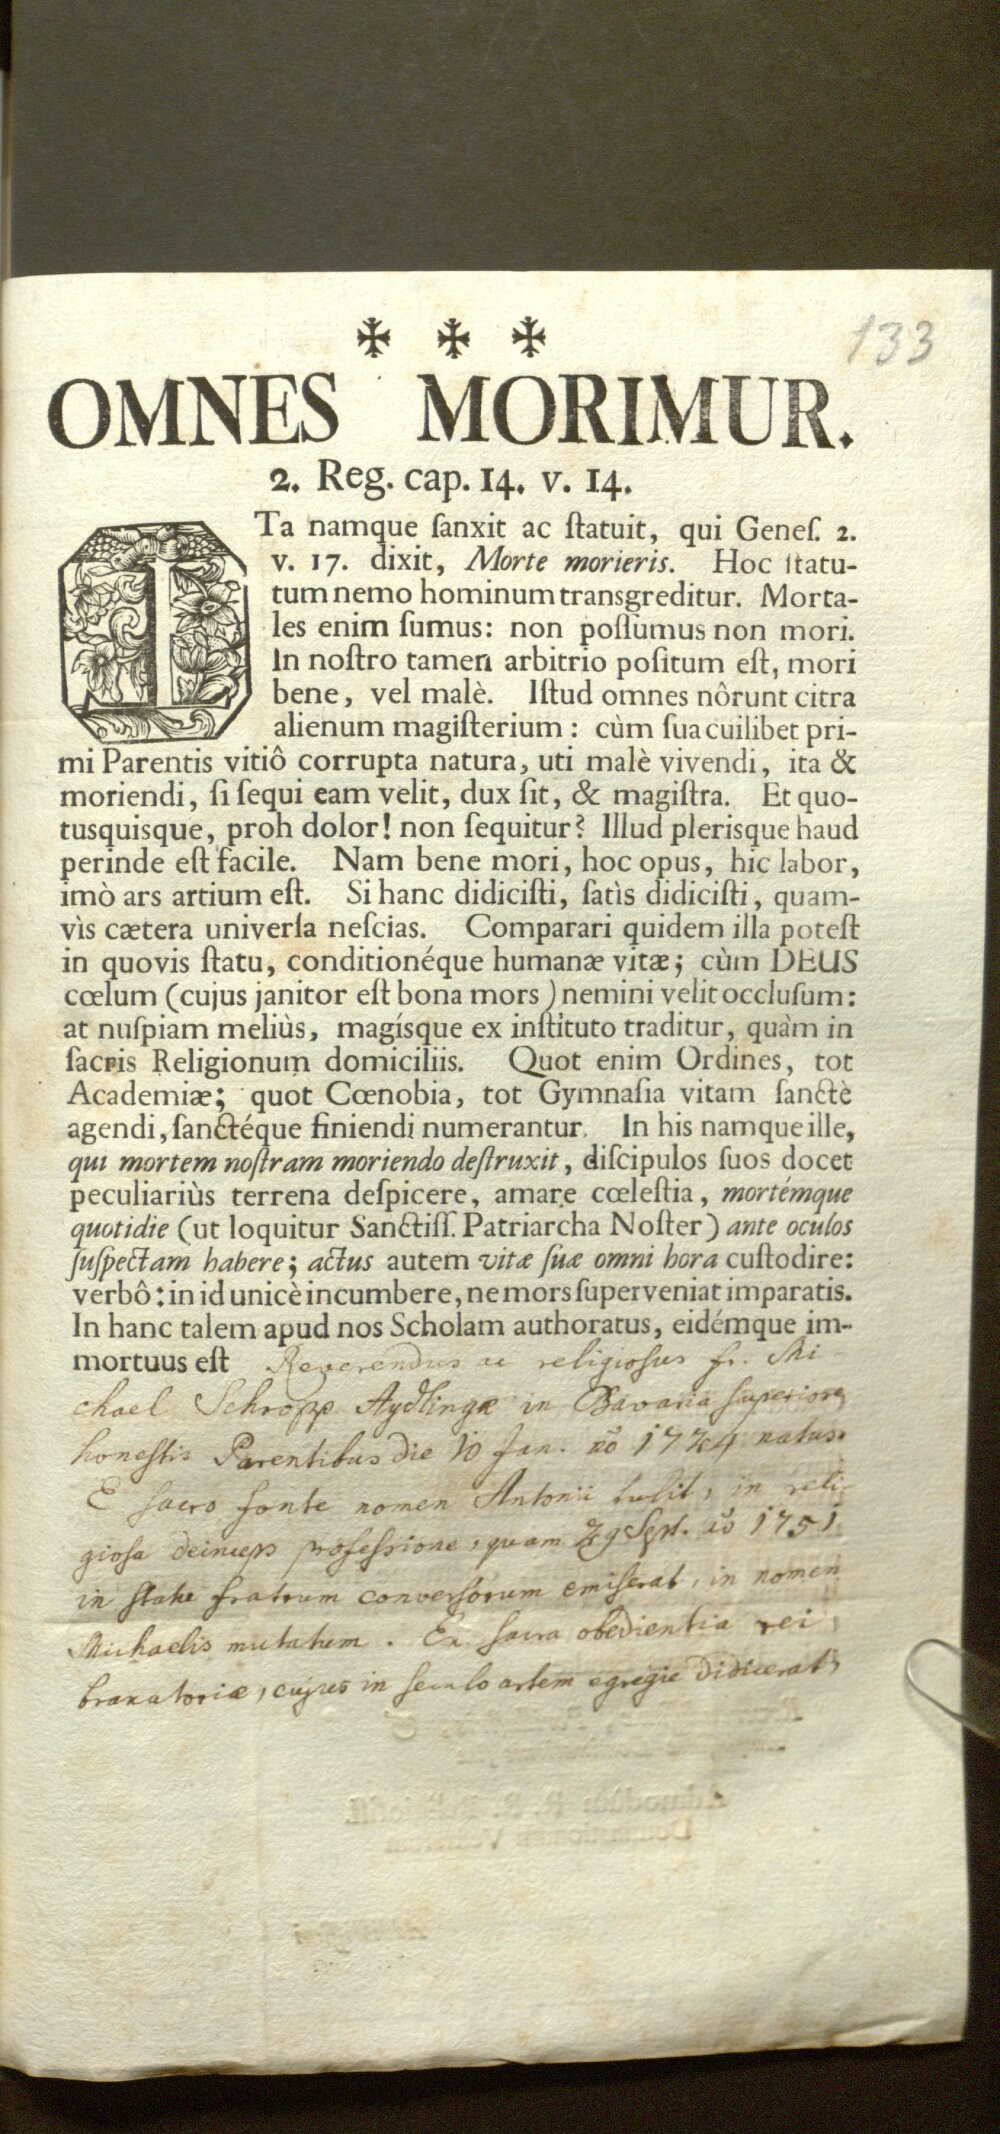 133
OMNES MORIMUR.
2. Reg. cap. 14. v. 14.
ITa namque ſanxit ac ſtatuit, qui Geneſ. 2.
v. 17. dixit, Morte morieris. Hoc ſtatu-
tum nemo hominum transgreditur. Morta-
les enim ſumus: non poſſumus non mori.
In noſtro tamen arbitrio poſitum eſt, mori
bene, vel malè. Iſtud omnes nôrunt citra
alienum magiſterium: cùm ſua cuilibet pri-
mi Parentis vitiô corrupta natura, uti malè vivendi, ita &
moriendi, ſi ſequi eam velit, dux ſit, & magiſtra. Et quo-
tusquisque, proh dolor! non ſequitur? Illud plerisque haud
perinde eſt facile. Nam bene mori, hoc opus, hic labor,
imò ars artium eſt. Si hanc didiciſti, ſatìs didiciſti, quam-
vìs cætera univerſa neſcias. Comparari quidem illa poteſt
in quovis ſtatu, conditionéque humanæ vitæ; cùm DEUS
cœlum (cujus janitor eſt bona mors) nemini velit occluſum:
at nuſpiam meliùs, magíſque ex inſtituto traditur, quàm in
ſacris Religionum domiciliis. Quot enim Ordines, tot
Academiæ; quot Cœnobia, tot Gymnaſia vitam ſanctè
agendi, ſanctéque finiendi numerantur. In his namque ille,
qui mortem noſtram moriendo deſtruxit, diſcipulos ſuos docet
peculiariùs terrena deſpicere, amare cœleſtia, mortémque
quotidie (ut loquitur Sanctiſſ. Patriarcha Noſter) ante oculos
ſuſpectam habere; actus autem vitæ ſuæ omni hora cuſtodire:
verbô: in id unicè incumbere, ne mors ſuperveniat imparatis.
In hanc talem apud nos Scholam authoratus, eidémque im-
mortuus eſt Reverendus ac religiosus fr. Mi-
chael Schropp Aydlingæ in Bavaria superiore
honestis Parentibus die 10 Jan. aõ 1724 natus.
E sacro fonte nomen Antonii tulit, in reli-
giosa deinceps professione, quam 29 Sept. aõ 1751
in statu fratrum conversorum emiserat, in nomen
Michaelis mutatum. Ex sacra obedientia rei
braxatoriæ, cujus in seculo artem egregie didicerat,